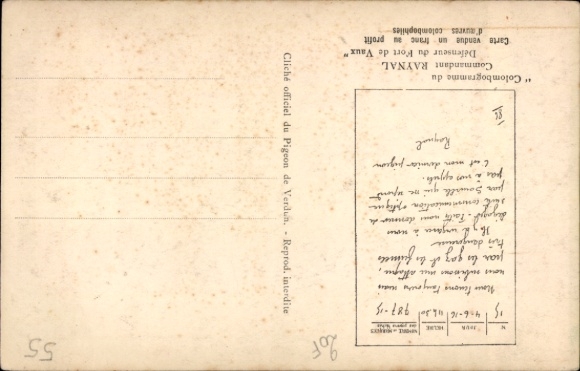 "Colombogramme du
Commandant RAYNAL
Défenseur du Fort de Vaux"
Carte vendue un franc au profit
d'œuvres colombophiles
N° JOUR HEURE NUMÉROS DES MESSAGES
15 4-6-16 11h30 787-15
Nous tenons toujours mais
nous subissons une attaque,
par les gaz et les fumées
très dangereuse
Il y a urgence à nous
dégager. Faites nous donner de
suite communication optique
par Souville qui ne répond
pas à nos appels.
C'est mon dernier pigeon
Raynal
Cliché officiel du Pigeon de Verdun. - Reprod. interdite
20F
55